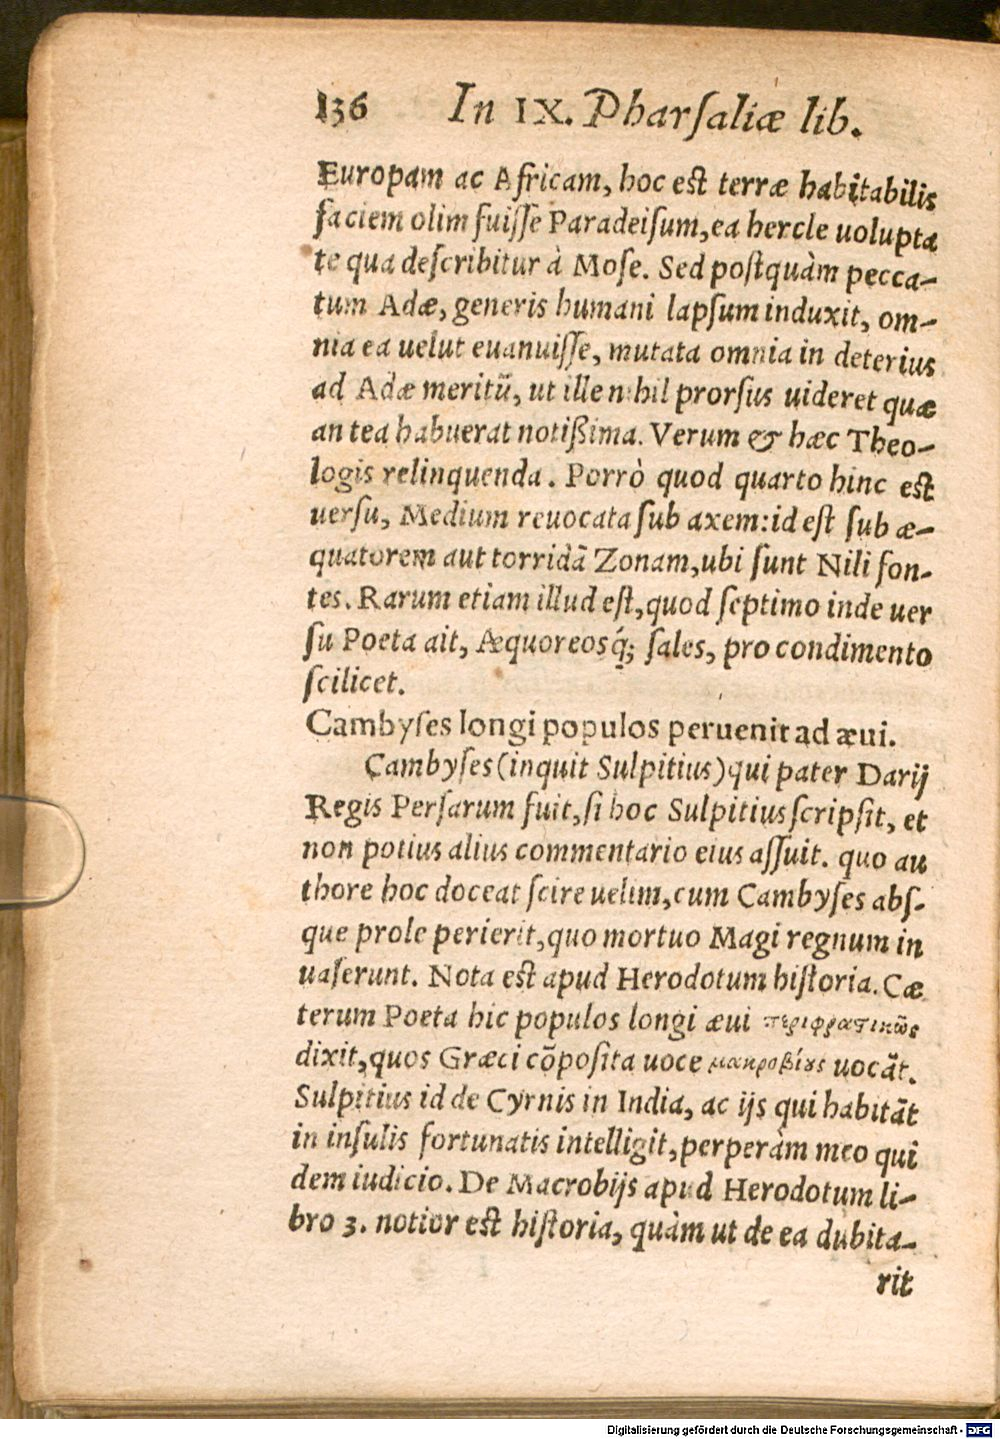 136 In IX. Pharſaliæ lib.
Europam ac Africam, hoc est terræ habitabilis
faciem olim fuiſſe Paradeiſum, ea hercle uolupta
te qua deſcribitur à Moſe. Sed poſtquàm pecca-
tum Adæ, generis humani lapſum induxit, om-
nia ea uelut euanuiſſe, mutata omnia in deterius
ad Adæ meritũ, ut ille nihil prorſius uideret quæ
an tea habuerat notißima. Verum & hæc Theo-
logis relinquenda. Porrò quod quarto hinc est
uerſu, Medium reuocata ſub axem: id eſt ſub æ-
quatorem aut torridã Zonam, ubi ſunt Nili fon-
tes. Rarum etiam illud eſt, quod ſeptimo inde uer
ſu Poeta ait, Æquoreosq́; ſales, pro condimento
ſcilicet.
Cambyſes longi populos peruenit ad æui.
Cambyſes (inquit Sulpitius) qui pater Darij
Regis Perſarum fuit, ſi hoc Sulpitius ſcripſit, et
non potius alius commentario eius aſſuit. quo au
thore hoc doceat ſcire uelim, cum Cambyſes abſ-
que prole perierit, quo mortuo Magi regnum in
uaſerunt. Nota est apud Herodotum hiſtoria. Cæ
terum Poeta hic populos longi æui περιφραστικῶς
dixit, quos Græci cõpoſita uoce μακροβίους uocãt.
Sulpitius id de Cyrnis in India, ac ijs qui habitãt
in inſulis fortunatis intelligit, perperàm meo qui
dem iudicio. De Macrobijs apud Herodotum li-
bro 3. notior est hiſtoria, quàm ut de ea dubita-
rit
Digitalisierung gefördert durch die Deutsche Forschungsgemeinschaft - DFG